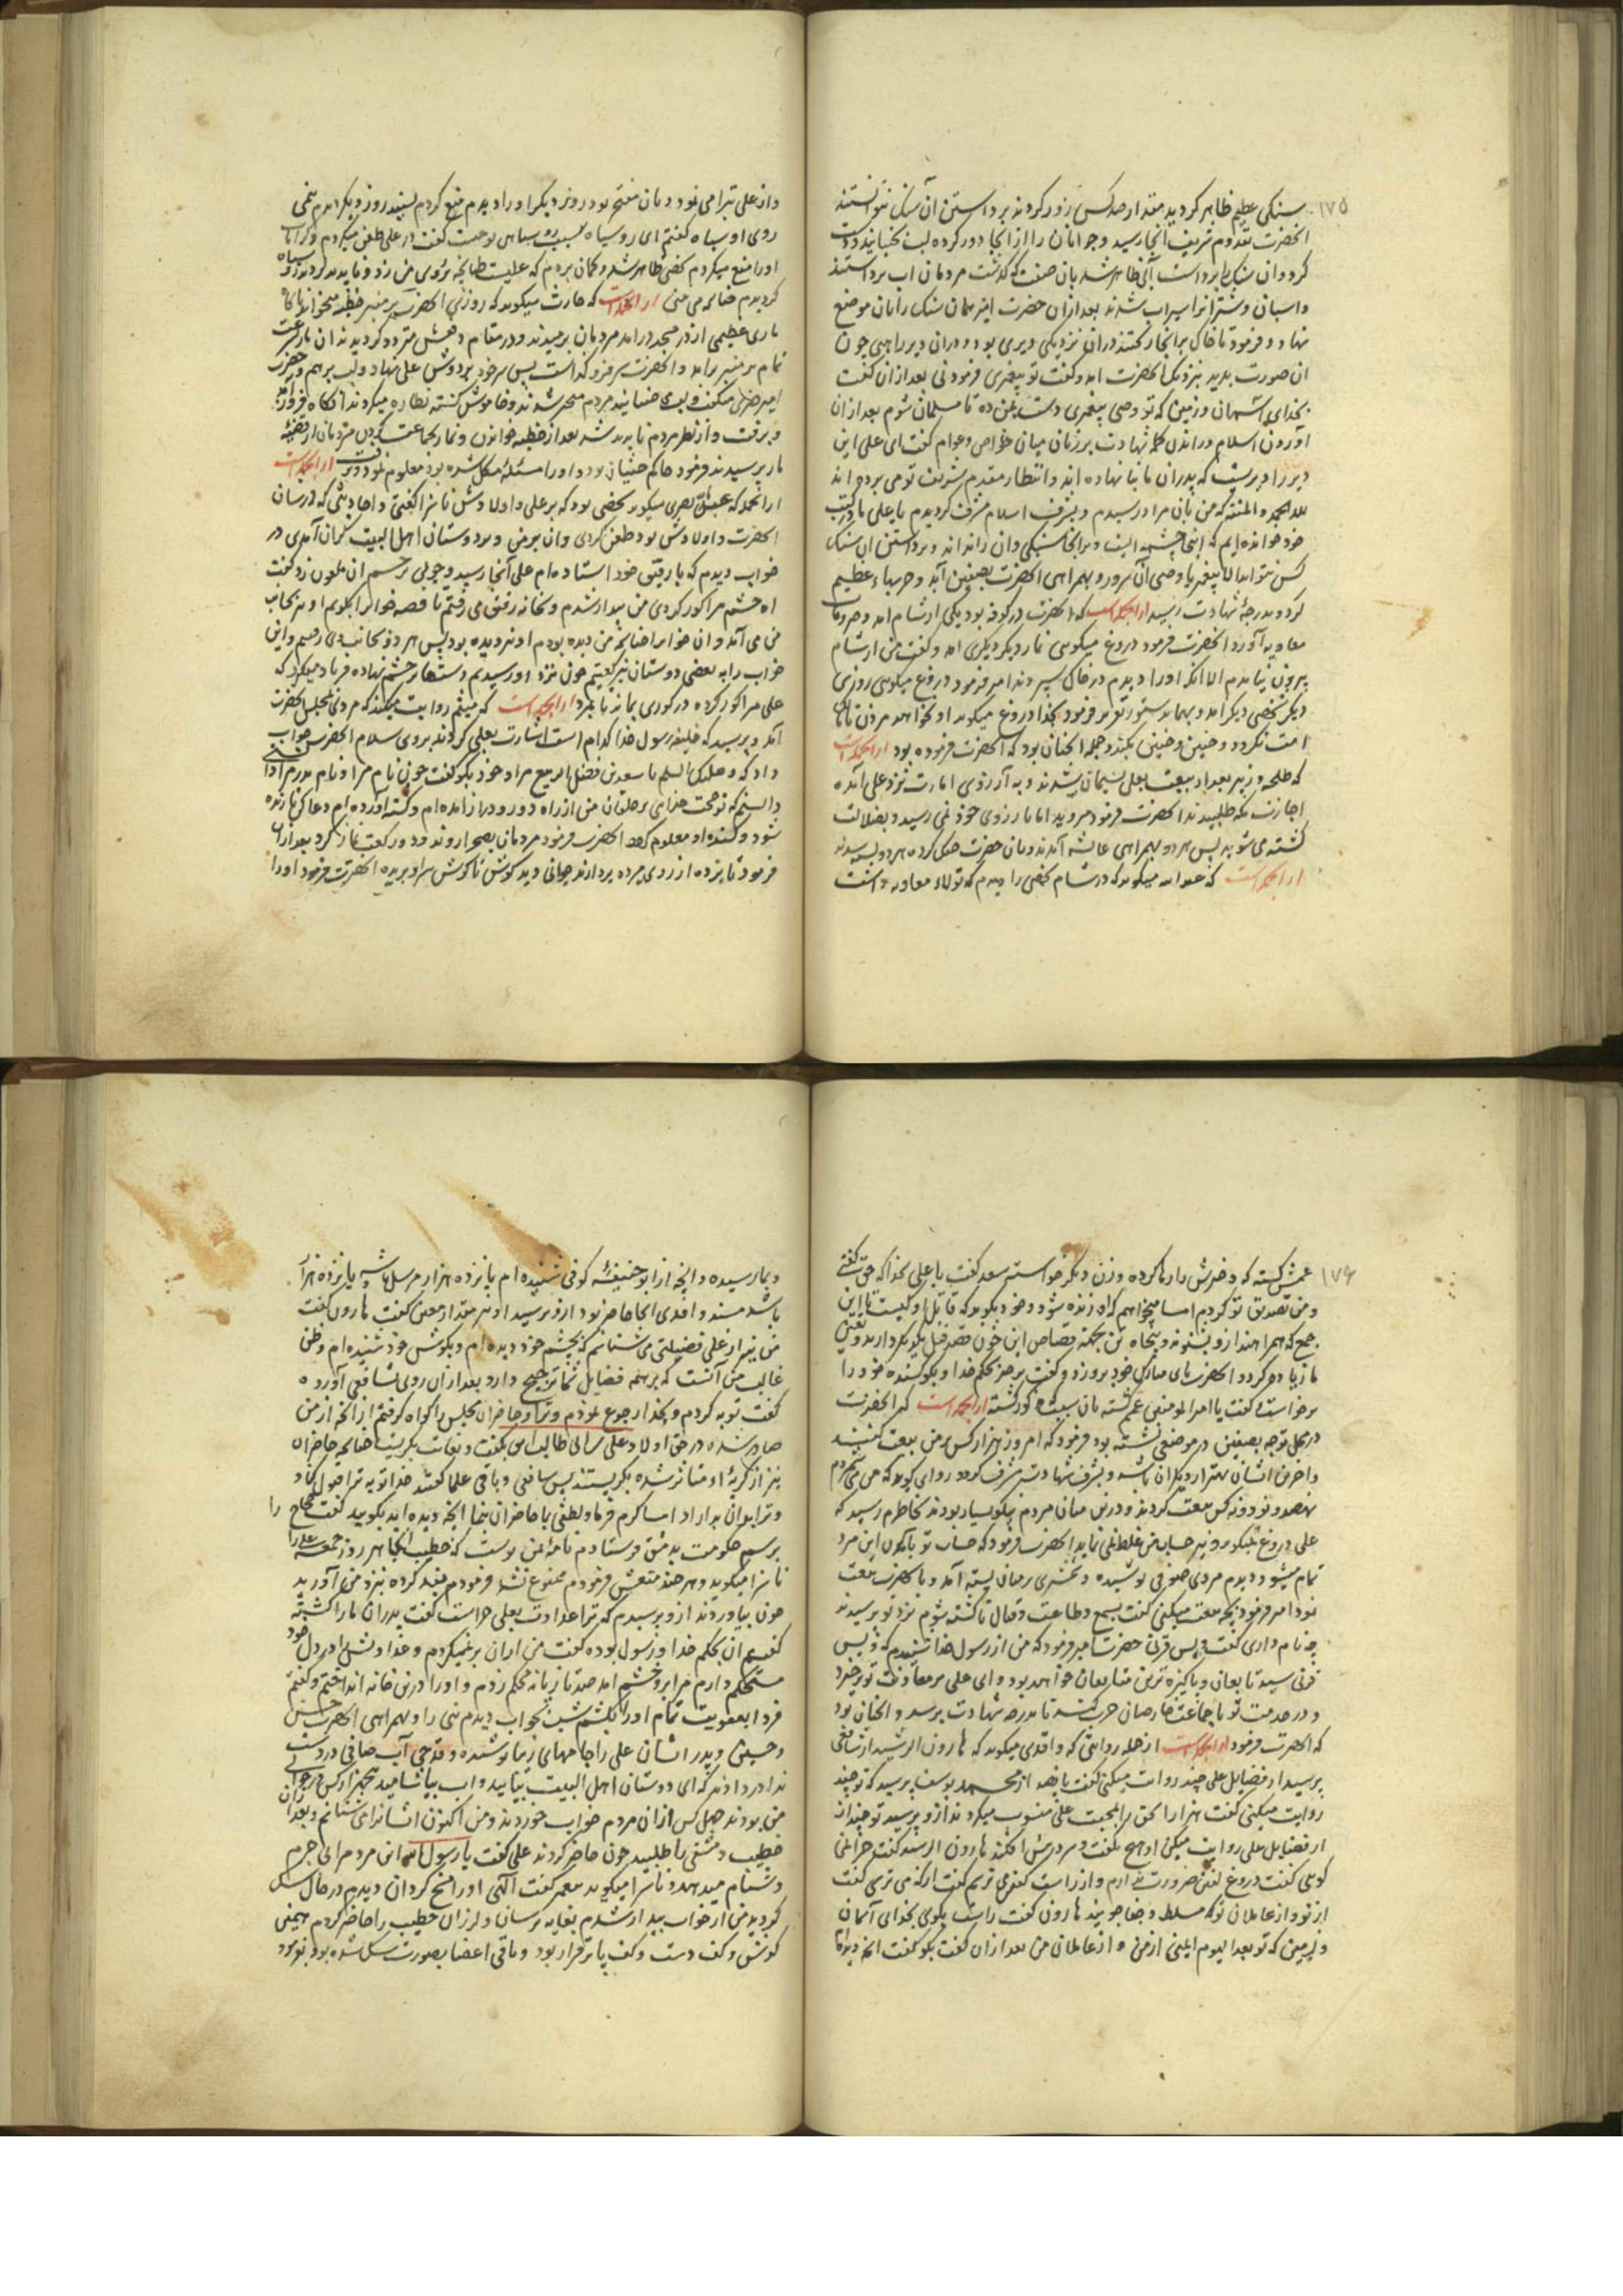 ۱۷۵
سنگی عظیم ظاهر کردید مقدار صد کس زور کردند برداشتن آن سنک نتوانستند
انحضرت بقدوم شریف انجا رسید و جوانان را از انجا دور کرده
کرد و ان سنک را برداشت آبی ظاهر شد بان صفت که گذشت مردمان اب برداشتند
و اسپان و شترانرا سیراب شدند بعد از ان حضرت امیر همان سنک را بان موضع
نهاد و فرمود تا خاک بر انجا ریختند در ان نزدیکی دیری بود و در ان دیر راهبی چون
ان صورت بدید بنزدیک انحضرت امد و گفت تو پیغمبری فرمود نی بعد از ان گفت
بخدای آسمان و زمین که تو وصی پیغمبری دست بمن ده تا مسلمان شوم بعد از ان
آوردن اسلام و راندن کلمه شهادت بر زبان میان خواص و عوام گفت ای علی این
دیر را بر پدران ما بنا نهاده اند و انتظار مقدم شریف تو می برده اند
لله الحمد والمنه که من بان مراد رسیدم و بشرف اسلام مشرف کردیدم یا علی ما در کتب
خود خوانده ایم که اینجا چشمه است و بر انجا سنکی و ان را نداند و برداشتن ان سنک
کس نتواند الا پیغمبر یا وصی آن سرور و بهمراهی انحضرت بصفین آمد و حربهاء عظیم
کرد و بدرجهٔ شهادت رسید از انجمله است که انحضرت در کوفه بود یکی از شام امد و خبر وفات
معاویه آورد انحضرت فرمود دروغ میکویی نماز دیکر دیکری امد و گفت من از شام
بیرون نیامدم الا انکه او را دیدم در خاک سپردند امیر فرمود دروغ میکویی روز
دیکر شخصی دیکر امد و بهمان دستور تقریر فرمود بخدا دروغ میکوید او نخواهد مردن تا
امت نکردد و چنین و چنین نکند و جمله انچنان بود که انحضرت فرموده بود از انجمله است
که طلحه و زبیر بعد از بیعت بعلی پشیمان شدند و به آرزوی امارت نزد علی آمده
اجازت مکه طلبیدند انحضرت فرمود میروید اما بارزوی خود نمی رسید و بضلالت
کشته می شوید پس هر دو بهمراهی عایشه آمدند و بان حضرت جنک کرده هر دو
از انجمله است که عبدالله میکوید که در شام شخصی را دیدم که تولاء معاویه داشت
و از علی تبرا می نمود و بان مفتخر بود روز دیکر او را دیدم منع کردم نشنید روز دیکر دیدم نیمی
روی او سیاه گفتم ای رو سیاه بسبب رو سیاهی تو چیست گفت در علی طعن میکردم
او را منع میکردم شخصی ظاهر شد و کمان بردم که علیست طپانچه بر روی من زد
کردیدم چنانکه می بینی از انجمله است که حارث میکوید که روزی انحضرت بر منبر خطبه میخواند ناکاه
ماری عظیمی از در مسجد درامد مردمان برمیدند و در مقام دفعش متردد کردیدند ان مار بسرعت
تمام بر منبر برامد و انحضرت سر فرو گذاشت پس سر خود بر دوش علی نهاد و لب برهم
امیر چیزی میگفت و مردم متحیر شدند و خاموش کشته نظاره میکردند انگاه فرود آمد
و برفت و از نظر مردم ناپدید شد بعد از خطبه خواندن و نماز بجماعت کردن مردمان از قضیه
مار پرسیدند فرمود حاکم جنیان بود و او را مسئله مشکل شده بود معلوم نمود و رفت از انجمله است
از انجمله که بصری میکوید شخصی بود که بر علی و اولادش ناسزا گفتی و احادیثی که در شان
انحضرت و اولادش بود طعن کردی و ان بر من و بر دوستان اهل البیت گران آمدی در
خواب دیدم که با رفیق خود استاده ام علی آنجا رسید و چوبی بر چشم ان ملعون زد گفت
آه چشمم را کور کردی من بیدار شدم و بخانه رفیق می رفتم تا قصه خواب را بگویم او نیز بجانب
من می آمد و ان خواب را چنانچه من دیده بودم او نیز دیده بود پس هر دو بجانب وی رفتیم و این
خواب را به بعضی دوستان نیز گفتیم چون نزد او رسیدیم دستها بر چشم نهاده فریاد میکرد که
علی مرا کور کرده در کوری بماند تا بمرد از انجمله است که میثم روایت میکند که مردی بمجلس انحضرت
آمد و پرسید که خلیفه رسول خدا کدام است اشارت بعلی کردند بروی سلام انحضرت جواب
داد که و علیک السلام یا سعد بن فضل الربیع مراد خود بگو گفت چون نام مرا و نام پدر مرا
دانستم که تو حجت خدای بر خلقان من از راه دور و دراز آمده ام و کشته آورده ام دعا کن تا زنده
شود و کشنده او معلوم کردد انحضرت فرمود مردمان بصحرا روند و دو رکعت نماز کرد بعد از ان
فرمود تا پرده از روی مرده بردارند جوانی دید کوش تا کوش سر او بریده انحضرت فرمود او را
۱۷۶
عمش کشته که دخترش را رها کرده و زن دیکر خواسته سعد گفت یا علی بخدا که حق گفتی
و من تصدیق تو کردم اما میخواهم که او زنده شود و خود بگوید که قاتل او کیست تا این
جمع که همراهند از و بشنوند و پنجاه تن بجهت قصاص این خون قصد قتل یکدیکر دارند و یقین
ما زیاده کردد انحضرت پای مبارک خود بر وی زد و گفت برخیز بحکم خدا و بگو کشنده خود را
برخواست و گفت یا امیر المومنین عمم کشته بان سبب که کور کشته از انجمله است که انحضرت
در محل توجه بصفین در موضعی نشسته بود فرمود که امروز هزار کس بر من بیعت کنند
و اخرین ایشان بهتر از دیکران باشد و بشرف شهادت مشرف کردد راوی کوید که من می شمردم
نهصد و نود و نه کس بیعت کردند و در من میان مردم نیکو بسیار بودند بخاطرم رسید که
علی دروغ نمیکوید و نیز حساب من غلط نمی نماید انحضرت فرمود که حساب تو باکنون این مرد
تمام میشود دیدم مردی صوفی پوشیده و شمشیری بر میان بسته آمد و با انحضرت بیعت
نمود امیر فرمود بچه بیعت میکنی گفت بسمع و طاعت و قتال تا کشته شوم نزد تو پرسیدند
چه نام داری گفت اویس قرنی حضرت امیر فرمود که من از رسول خدا شنیدم که اویس
قرنی سید تابعان و پاکیزه ترین متابعان خواهد بود و ای علی بر معاونت تو برخیزد
و در خدمت تو با جماعت خارجیان حرب کند تا بدرجه شهادت برسد و انچنان بود
که انحضرت فرمود از انجمله است از جمله روایتی که واقدی میکوید که هارون الرشید از شافعی
پرسید از فضایل علی چند روایت میکنی گفت پانصد از محمد یوسف پرسید که تو چند
روایت میکنی گفت هزار از و پرسید تو چند از
از فضایل علی روایت میکنی او هیچ نگفت و سر در پیش افکند هارون الرشید گفت چرا نمی
کویی گفت دروغ گفتن ضرورت ندارم و از راست گفتن می ترسم گفت از که می ترسی گفت
از تو و از عاملان تو که مسلط و جفا جویند هارون گفت راست بگوی بخدای آسمان
و زمین که تو بعد الیوم ایمنی از من و از عاملان من بعد از ان گفت بگو گفت انچه
و بما رسیده و انچه از ابو حنیفه کوفی شنیده ام پانزده هزار مرسل باشد و پانزده هزار
باشد مسند واقدی انجا حاضر بود از و پرسید او نیز مقدار معین گفت هارون گفت
من نیز از علی فضیلتی می شناسم که بچشم خود دیده ام و بکوش خود شنیده ام و ظن
غالب من آنست که بر همه فضایل شما ترجیح دارد بعد از ان روی بشافعی آورده
گفت توبه کردم و بخدا رجوع نمودم و ترا و حاضران مجلس را گواه گرفتم از انچه از من
صادر شده در حق اولاد علی بن ابی طالب این بگفت و بغایت بگریست چنانچه حاضران
نیز از گریهٔ او متاثر شده بگریستند پس شافعی و باقی علما گفتند خدا توبه ترا قبول کناد
و ترا بر ان بداراد اما کرم فرما و لطفی با حاضران بنما انچه دیده اید بگویید گفت حجاج را
برسم حکومت بدمشق فرستادم نامه بمن نوشت که خطیب انجا هر روز جمعه علی را
ناسزا میکوید و هر چند منعش فرمودم ممنوع نشد فرمودم مقید کرده نزد من آورید
چون بیاوردند از و پرسیدم که ترا عداوت بعلی چراست گفت پدران ما را کشته
گفتم ان بحکم خدا و رسول بوده گفت من از ان برنمیگردم و عداوتش در دل خود
مستحکم دارم مرا بر وی خشم امد صد تازیانه محکم زدم و او را در من خانه انداختم و گفتم
فردا بعقوبت تمام او را بکشم شب بخواب دیدم نبی را و بهمراهی انحضرت حسن
و حسین و پدر ایشان علی را جامهای زیبا پوشیده و قدحی آب صافی در دست
ندا در دادند که ای دوستان اهل البیت بیایید و اب بیاشامید پنجهزار کس در حوالی
من بودند چهل کس از ان مردم خواب خوردند و من اکنون ایشانرا می شناسم و بعد از ان
خطیب دمشقی را طلبید چون حاضر کردند علی گفت یا رسول الله این مرد مرا بی جرم
دشنام میدهد و ناسزا میکوید پیغمبر گفت الهی او را مسخ کردان دیدم در حال سک
کردید من از خواب بیدار شدم بغایت ترسان و لرزان خطیب را حاضر کردم بهمین
کوش و کف دست و کف پا برقرار بود و باقی اعضا بصورت سک شده بود فرمود